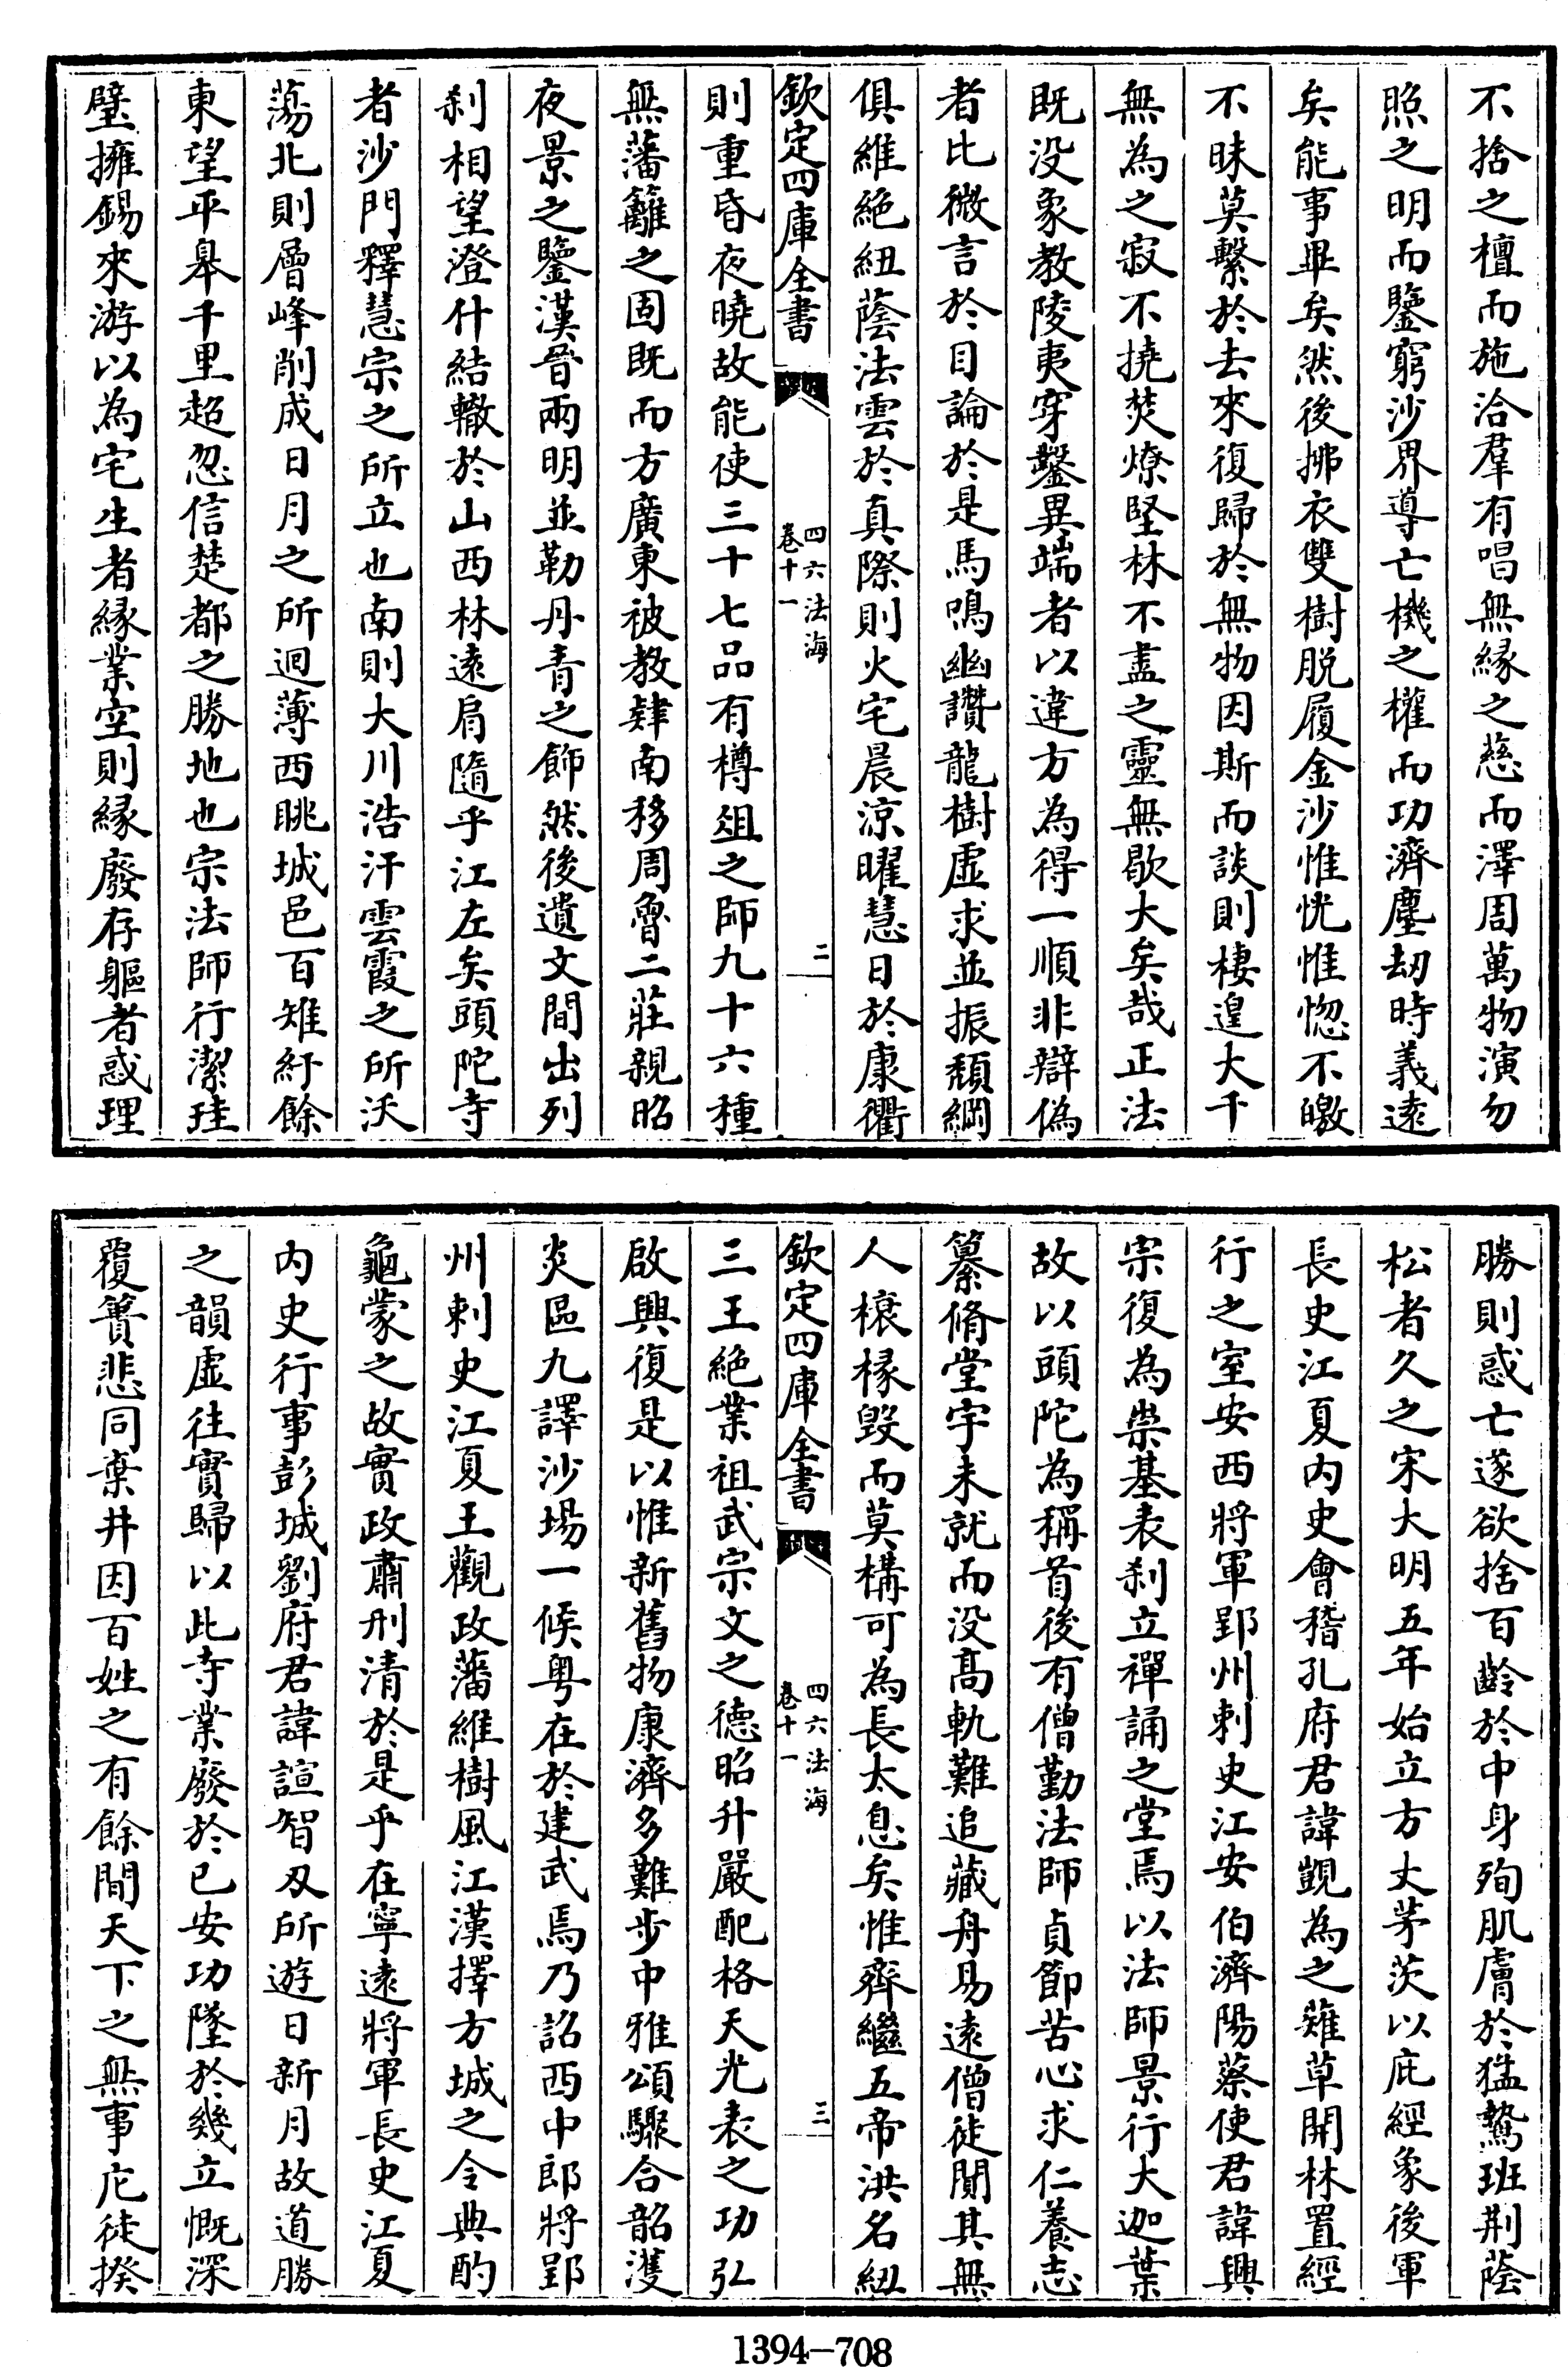 不捨之檀而施洽羣有唱無縁之慈而澤周萬物演勿
照之明而鑒窮沙界導亡機之權而功濟塵劫時義逺
矣能事畢矣然後拂衣雙樹脱屨金沙惟恍惟惚不皦
不昧莫繫於去來復歸於無物因斯而談則棲遑大千
無為之寂不撓焚燎堅林不盡之靈無歇大矣哉正法
既没象教陵夷穿鑿異端者以違方為得一順非辯偽
者比微言於目論於是馬鳴幽讚龍樹虚求並振頽綱
俱維絶紐蔭法雲於真際則火宅晨涼曜慧日於康衢
欽定四庫全書
四六法海
卷十一
二
則重昏夜曉故能使三十七品有樽俎之師九十六種
無藩籬之固既而方廣東被教肄南移周魯二莊親昭
夜景之鑒漢晉兩明並勒丹青之飾然後遺文間出列
刹相望澄什結轍於山西林逺肩隨乎江左矣頭陀寺
者沙門釋慧宗之所立也南則大川浩汗雲霞之所沃
蕩北則層峰削成日月之所迴薄西眺城邑百雉紆餘
東望平臯千里超忽信楚都之勝地也宗法師行潔珪
璧擁錫來游以為宅生者縁業空則縁廢存軀者惑理
勝則惑亡遂欲捨百齡於中身殉肌膚於猛鷙班荆蔭
松者久之宋大明五年始立方丈茅茨以庇經象後軍
長史江夏内史會稽孔府君諱覬為之薙草開林置經
行之室安西將軍郢州刺史江安伯濟陽蔡使君諱興
宗復為崇基表刹立禪誦之堂焉以法師景行大迦葉
故以頭陀為稱首後有僧勤法師貞節苦心求仁養志
纂脩堂宇未就而没髙軌難追藏舟易逺僧徒閴其無
人榱椽毁而莫構可為長太息矣惟齊繼五帝洪名紐
欽定四庫全書
四六法海
卷十一
三
三王絶業祖武宗文之德昭升嚴配格天光表之功弘
啟興復是以惟新舊物康濟多難步中雅頌驟合韶濩
炎區九譯沙場一候粤在於建武焉乃詔西中郎將郢
州刺史江夏王觀政藩維樹風江漢擇方城之令典酌
龜蒙之故實政肅刑清於是乎在寧逺將軍長史江夏
内史行事彭城劉府君諱諠智刃所遊日新月故道勝
之韻虚往實歸以此寺業廢於已安功墜於幾立慨深
覆簣悲同棄井因百姓之有餘間天下之無事庀徒揆
1394-708